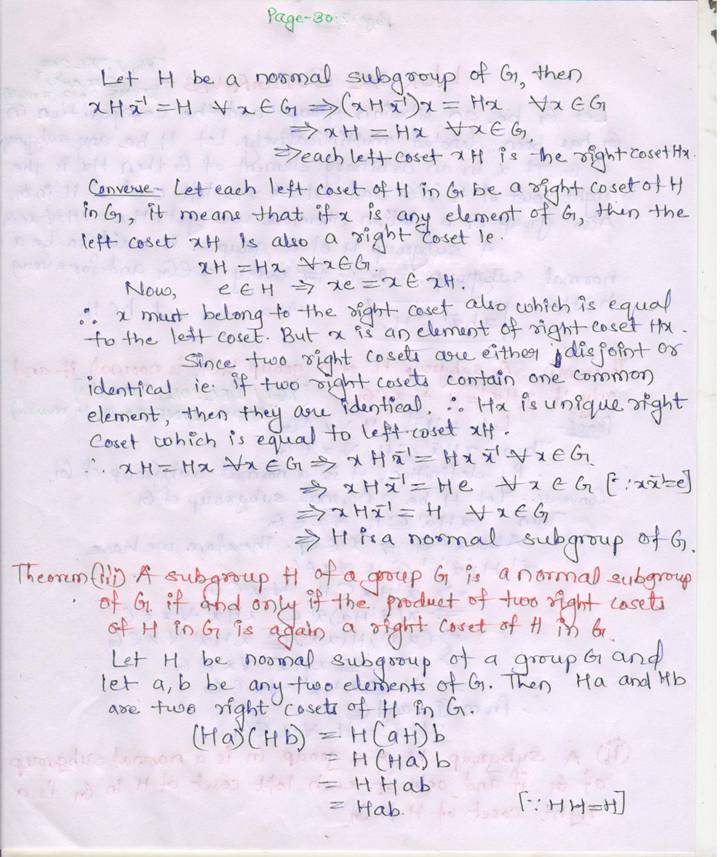 Page-30
Let H be a normal subgroup of G, then
xHx⁻¹ = H ∀ x ∈ G ⇒ (xHx⁻¹)x = Hx ∀ x ∈ G
⇒ xH = Hx ∀ x ∈ G
⇒ each left coset xH is the right coset Hx.
Converse - Let each left coset of H in G be a right coset of H
in G, it means that if x is any element of G, then the
left coset xH is also a right coset ie.
xH = Hx ∀ x ∈ G.
Now, e ∈ H ⇒ xe = x ∈ xH.
∴ x must belong to the right coset also which is equal
to the left coset. But x is an element of right coset Hx.
Since two right cosets are either disjoint or
identical ie. if two right cosets contain one common
element, then they are identical. ∴ Hx is unique right
coset which is equal to left coset xH.
∴ xH = Hx ∀ x ∈ G ⇒ xHx⁻¹ = Hxx⁻¹ ∀ x ∈ G
⇒ xHx⁻¹ = He ∀ x ∈ G [∵ xx⁻¹=e]
⇒ xHx⁻¹ = H ∀ x ∈ G
⇒ H is a normal subgroup of G.
Theorem (iii) A subgroup H of a group G is a normal subgroup
of G if and only if the product of two right cosets
of H in G is again a right coset of H in G.
Let H be normal subgroup of a group G and
let a, b be any two elements of G. Then Ha and Hb
are two right cosets of H in G.
(Ha)(Hb) = H(aH)b
= H(Ha)b
= HHab
= Hab. [∵ HH=H]